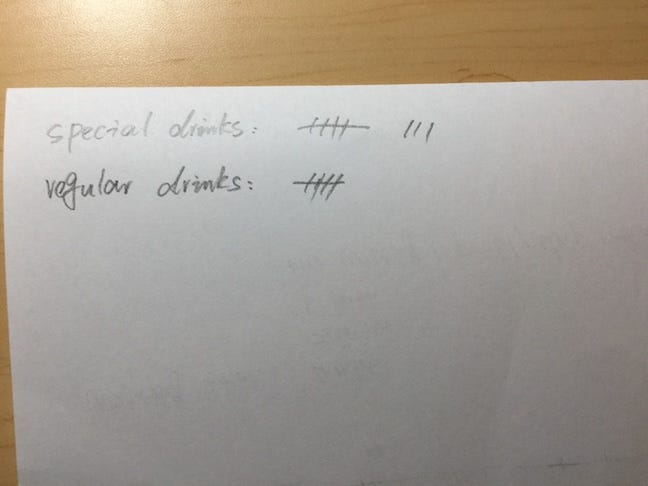 special drinks: 卌 III
regular drinks: 卌